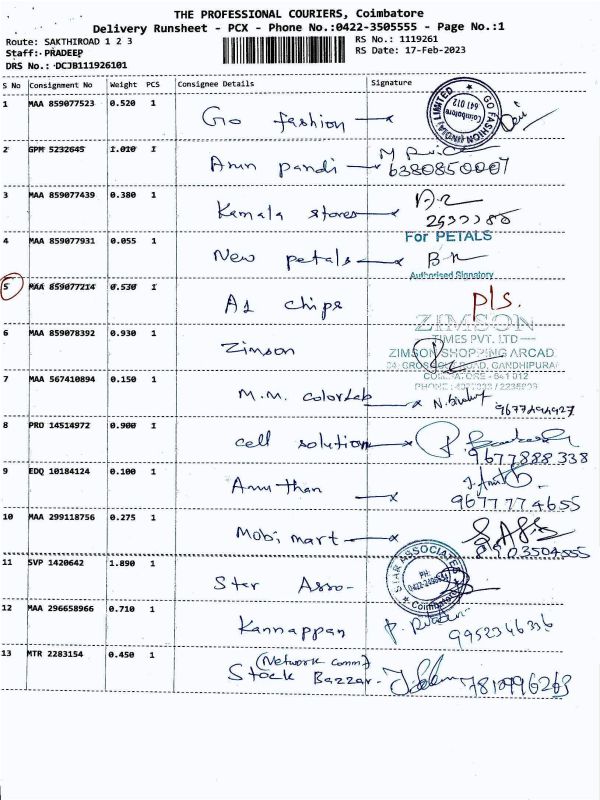 THE PROFESSIONAL COURIERS, Coimbatore
Delivery Runsheet - PCX - Phone No.:0422-3505555 - Page No.:1
Route: SAKTHIROAD 1 2 3
RS No.: 1119261
Staff: PRADEEP
RS Date: 17-Feb-2023
DRS No.: DCJB111926101
S No Consignment No Weight PCS Consignee Details Signature
1 MAA 859077523 0.520 1 Go fashion
GO FASHION (INDIA) LIMITED Coimbatore 641 012
2 GPM 5232645 1.010 1 Arun pandi
6380850007
3 MAA 859077439 0.380 1 Kamala stores
4 MAA 859077931 0.055 1 New petals
For PETALS
Authorised Signatory
5 MAA 859077214 0.530 1 A1 chips pls.
6 MAA 859078392 0.930 1 Zimson
ZIMSON
TIMES PVT. LTD
ZIMSON SHOPPING ARCAD
ROAD, GANDHIPURA
COIMBATORE - 641 012
PHONE :
7 MAA 567410894 0.150 1 M.M. colorlab
8 PRO 14514972 0.900 1 cell solution
9677888338
9 EDQ 10184124 0.100 1 Anu than
9677774655
10 MAA 299118756 0.275 1 Mobi mart
11 SVP 1420642 1.890 1 Star Asso-
STAR ASSOCIATES Coimbatore
12 MAA 296658966 0.710 1 Kannappan
9952346336
13 MTR 2283154 0.450 1 (Network comm)
Stock Bazzar-
7810996263